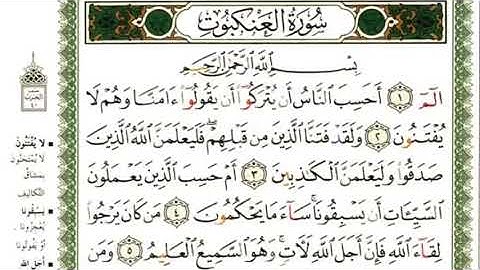 سُورَةُ الْعَنكَبُوتِ
بِسْمِ اللَّهِ الرَّحْمَٰنِ الرَّحِيمِ
الٓمٓ ۝١ أَحَسِبَ النَّاسُ أَن يُتْرَكُوٓا۟ أَن يَقُولُوٓا۟ ءَامَنَّا وَهُمْ لَا
يُفْتَنُونَ ۝٢ وَلَقَدْ فَتَنَّا الَّذِينَ مِن قَبْلِهِمْ ۖ فَلَيَعْلَمَنَّ اللَّهُ الَّذِينَ
صَدَقُوا۟ وَلَيَعْلَمَنَّ الْكَٰذِبِينَ ۝٣ أَمْ حَسِبَ الَّذِينَ يَعْمَلُونَ
السَّيِّـَٔاتِ أَن يَسْبِقُونَا ۚ سَآءَ مَا يَحْكُمُونَ ۝٤ مَن كَانَ يَرْجُوا۟
لِقَآءَ اللَّهِ فَإِنَّ أَجَلَ اللَّهِ لَءَاتٍ ۚ وَهُوَ السَّمِيعُ الْعَلِيمُ ۝٥ وَمَن
لا يُفْتَنُونَ
لا يُمْتَحَنُونَ
بمشاق
التكاليف
يَسْبِقُونَا
يُعْجِزُونَا
أو يَفُوتُونَا
أجل الله